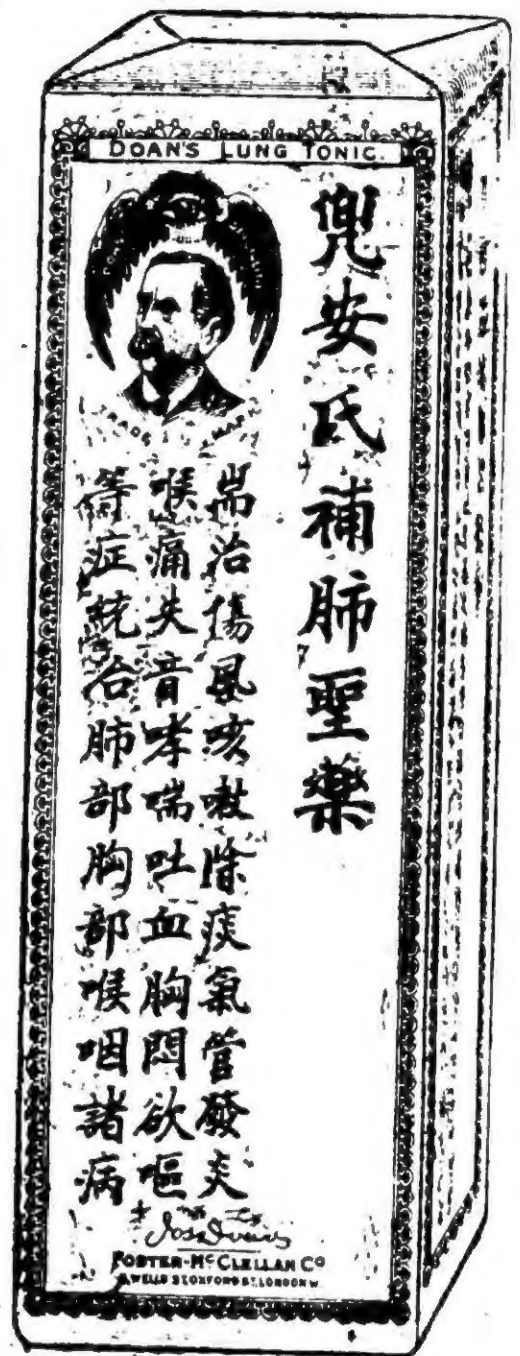 DOAN'S LUNG TONIC.
兜安氏補肺聖藥
TRADE MARK
耑治傷風咳嗽除痰氣管發炎
喉痛失音哮喘吐血胸悶欲嘔
等症統治肺部胸部喉咽諸病
FOSTER-McCLELLAN CO
8 WELLS ST. OXFORD ST. LONDON W.